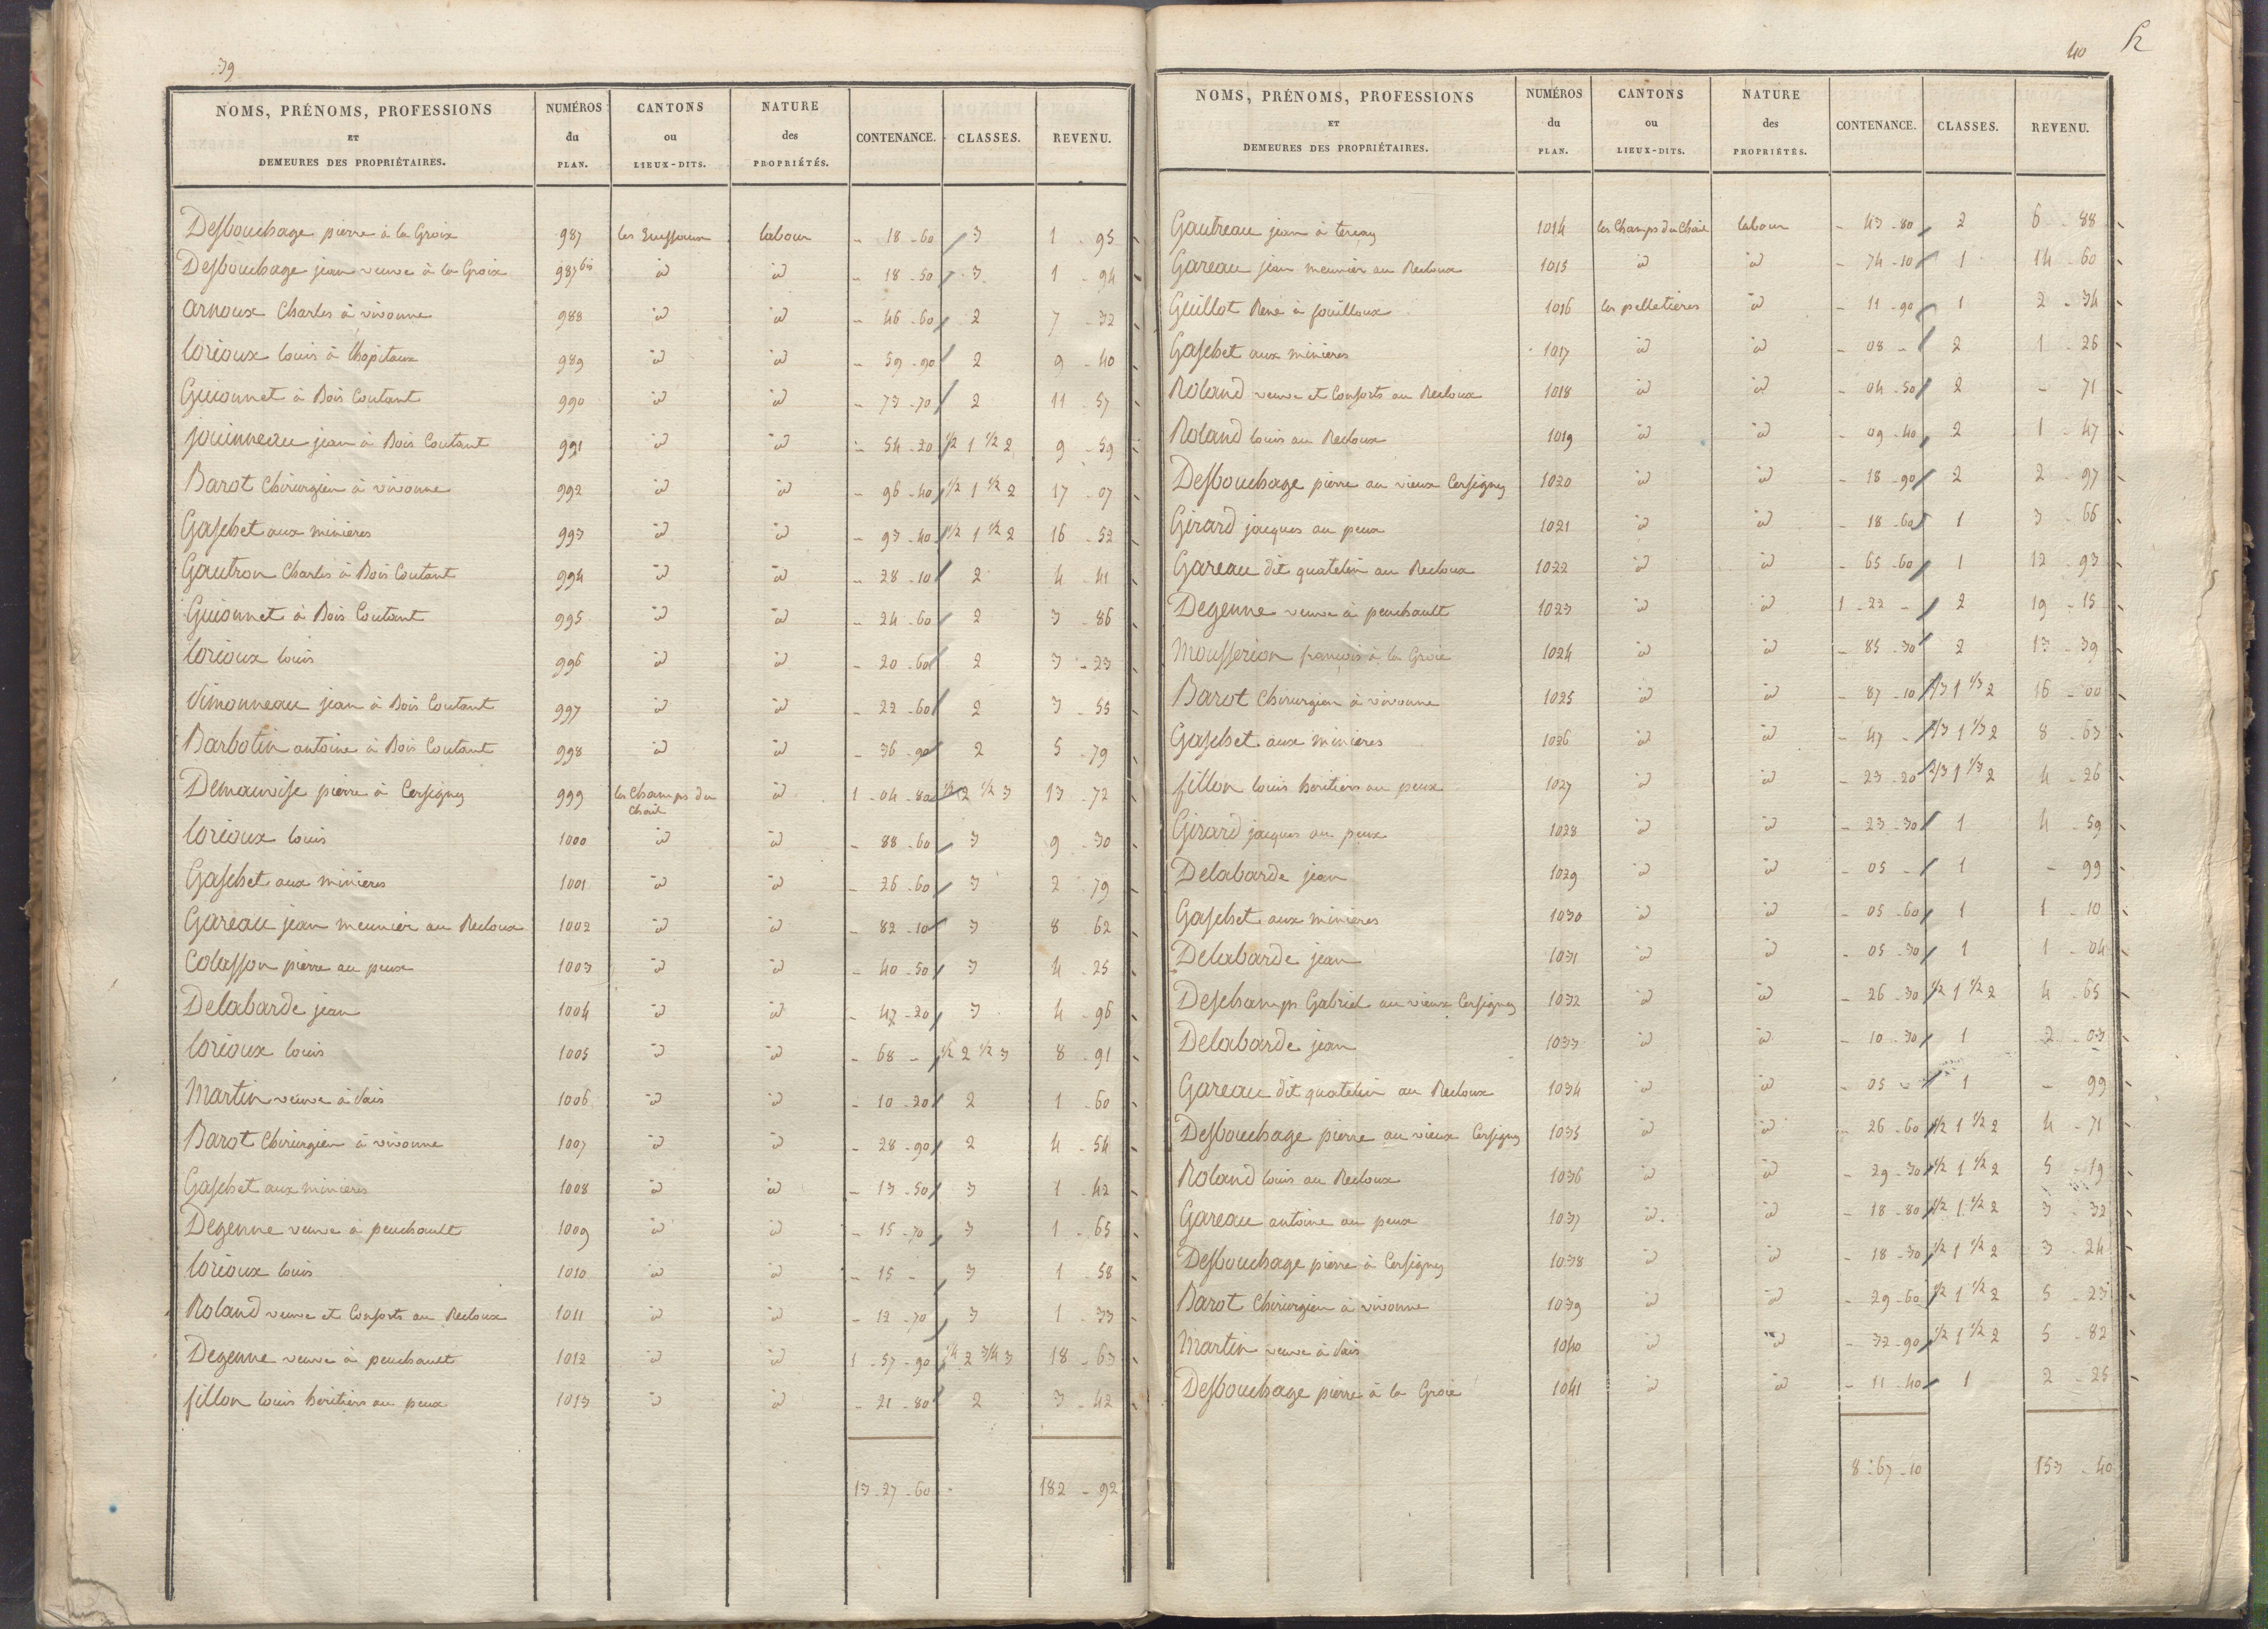 39
NOMS, PRÉNOMS, PROFESSIONS ET DEMEURES DES PROPRIÉTAIRES. NUMÉROS du PLAN. CANTONS ou LIEUX-DITS. NATURE des PROPRIÉTÉS. CONTENANCE. CLASSES. REVENU.
Desbouchage pierre à la Groix 987 les labour - 18 - 60 3 1 - 95
Desbouchage jean veuve à la Groix 987 bis id id - 18 - 50 3 1 - 94
arnoux Charles à vivonne 988 id id - 46 - 60 2 7 - 32
lorioux louis à lhopitaux 989 id id - 59 - 90 2 9 - 40
Guionnet à Bois Coutant 990 id id - 73 - 70 2 11 - 57
jouinneau jean à Bois Coutant 991 id id - 54 - 20 1/2 1 1/2 2 9 - 59
Barot Chirurgien à vivonne 992 id id - 96 - 40 1/2 1 1/2 2 17 - 07
Gaschet aux minieres 993 id id - 93 - 40 1/2 1 1/2 2 16 - 52
Gautron Charles à Bois Coutant 994 id id - 28 - 10 2 4 - 41
Guionnet à Bois Coutant 995 id id - 24 - 60 2 3 - 86
lorioux louis 996 id id - 20 - 60 2 3 - 23
Simonneau jean à Bois Coutant 997 id id - 22 - 60 2 3 - 55
Barbotin antoine à Bois Coutant 998 id id - 36 - 90 2 5 - 79
Demauvise pierre à Cersigny 999 les Champs du Chail id 1 - 04 - 80 1/2 2 1/2 3 13 - 72
lorioux louis 1000 id id - 88 - 60 3 9 - 30
Gaschet aux minieres 1001 id id - 26 - 60 3 2 - 79
Gareau jean meunier au Recloux 1002 id id - 82 - 10 3 8 62
Colasson pierre au peux 1003 id id - 40 - 50 3 4 - 25
Delabarde jean 1004 id id - 47 - 20 3 4 - 96
lorioux louis 1005 id id - 68 - 1/2 2 1/2 3 8 - 91
Martin veuve à Vais 1006 id id - 10 - 20 2 1 - 60
Barot Chirurgien à vivonne 1007 id id - 28 - 90 2 4 - 54
Gaschet aux minieres 1008 id id - 13 - 50 3 1 - 42
Degenne veuve à peuchault 1009 id id - 15 - 70 3 1 - 65
lorioux louis 1010 id id - 15 - 3 1 - 58
Roland veuve et Consorts au Recloux 1011 id id - 12 - 70 3 1 - 33
Degenne veuve à peuchault 1012 id id 1 - 57 - 90 1/4 2 3/4 3 18 - 63
fillon louis heritiers au peux 1013 id id - 21 - 80 2 3 - 42
13 - 27 - 60 182 - 92
40
NOMS, PRÉNOMS, PROFESSIONS ET DEMEURES DES PROPRIÉTAIRES. NUMÉROS du PLAN. CANTONS ou LIEUX-DITS. NATURE des PROPRIÉTÉS. CONTENANCE. CLASSES. REVENU.
Gautreau jean à 1014 les Champs du Chail labour - 43 - 80 2 6 - 88
Gareau jean meunier au Recloux 1015 id id - 74 - 10 1 14 - 60
Guillot René à fouilloux 1016 les pelletieres id - 11 - 90 1 2 - 34
Gaschet aux minieres 1017 id id - 08 - 2 1 - 26
Roland veuve et Consorts au Recloux 1018 id id - 04 - 50 2 - 71
Roland louis au Recloux 1019 id id - 09 - 40 2 1 - 47
Desbouchage pierre au vieux Cersigny 1020 id id - 18 - 90 2 2 - 97
Girard jacques au peux 1021 id id - 18 - 60 1 3 - 66
Gareau dit quatelin au Recloux 1022 id id - 65 - 60 1 12 - 93
Degenne veuve à peuchault 1023 id id 1 - 22 - 2 19 - 15
Mousserion françois à la Groie 1024 id id - 85 - 30 2 13 - 39
Barot Chirurgien à vivonne 1025 id id - 87 - 10 2/3 1 1/3 2 16 - 00
Gaschet aux minieres 1026 id id - 47 - 2/3 1 1/3 2 8 - 63
fillon louis heritiers au peux 1027 id id - 23 - 20 2/3 1 1/3 2 4 - 26
Girard jacques au peux 1028 id id - 23 - 30 1 4 - 59
Delabarde jean 1029 id id - 05 - 1 - 99
Gaschet aux minieres 1030 id id - 05 - 60 1 1 - 10
Delabarde jean 1031 id id - 05 - 30 1 1 - 04
Deschamps Gabriel au vieux Cersigny 1032 id id - 26 - 30 1/2 1 1/2 2 4 - 65
Delabarde jean 1033 id id - 10 - 30 1 2 - 03
Gareau dit quatelin au Recloux 1034 id id - 05 - 1 - 99
Desbouchage pierre au vieux Cersigny 1035 id id - 26 - 60 1/2 1 1/2 2 4 - 71
Roland louis au Recloux 1036 id id - 29 - 30 1/2 1 1/2 2 5 - 19
Gareau antoine au peux 1037 id id - 18 - 80 1/2 1 1/2 2 3 - 32
Desbouchage pierre à Cersigny 1038 id id - 18 - 30 1/2 1 1/2 2 3 - 24
Barot Chirurgien à vivonne 1039 id id - 29 - 60 1/2 1 1/2 2 5 - 23
Martin veuve à Vais 1040 id id - 32 - 90 1/2 1 1/2 2 5 - 82
Desbouchage pierre à la Groie 1041 id id - 11 - 40 1 2 - 25
8 - 67 - 10 153 - 40